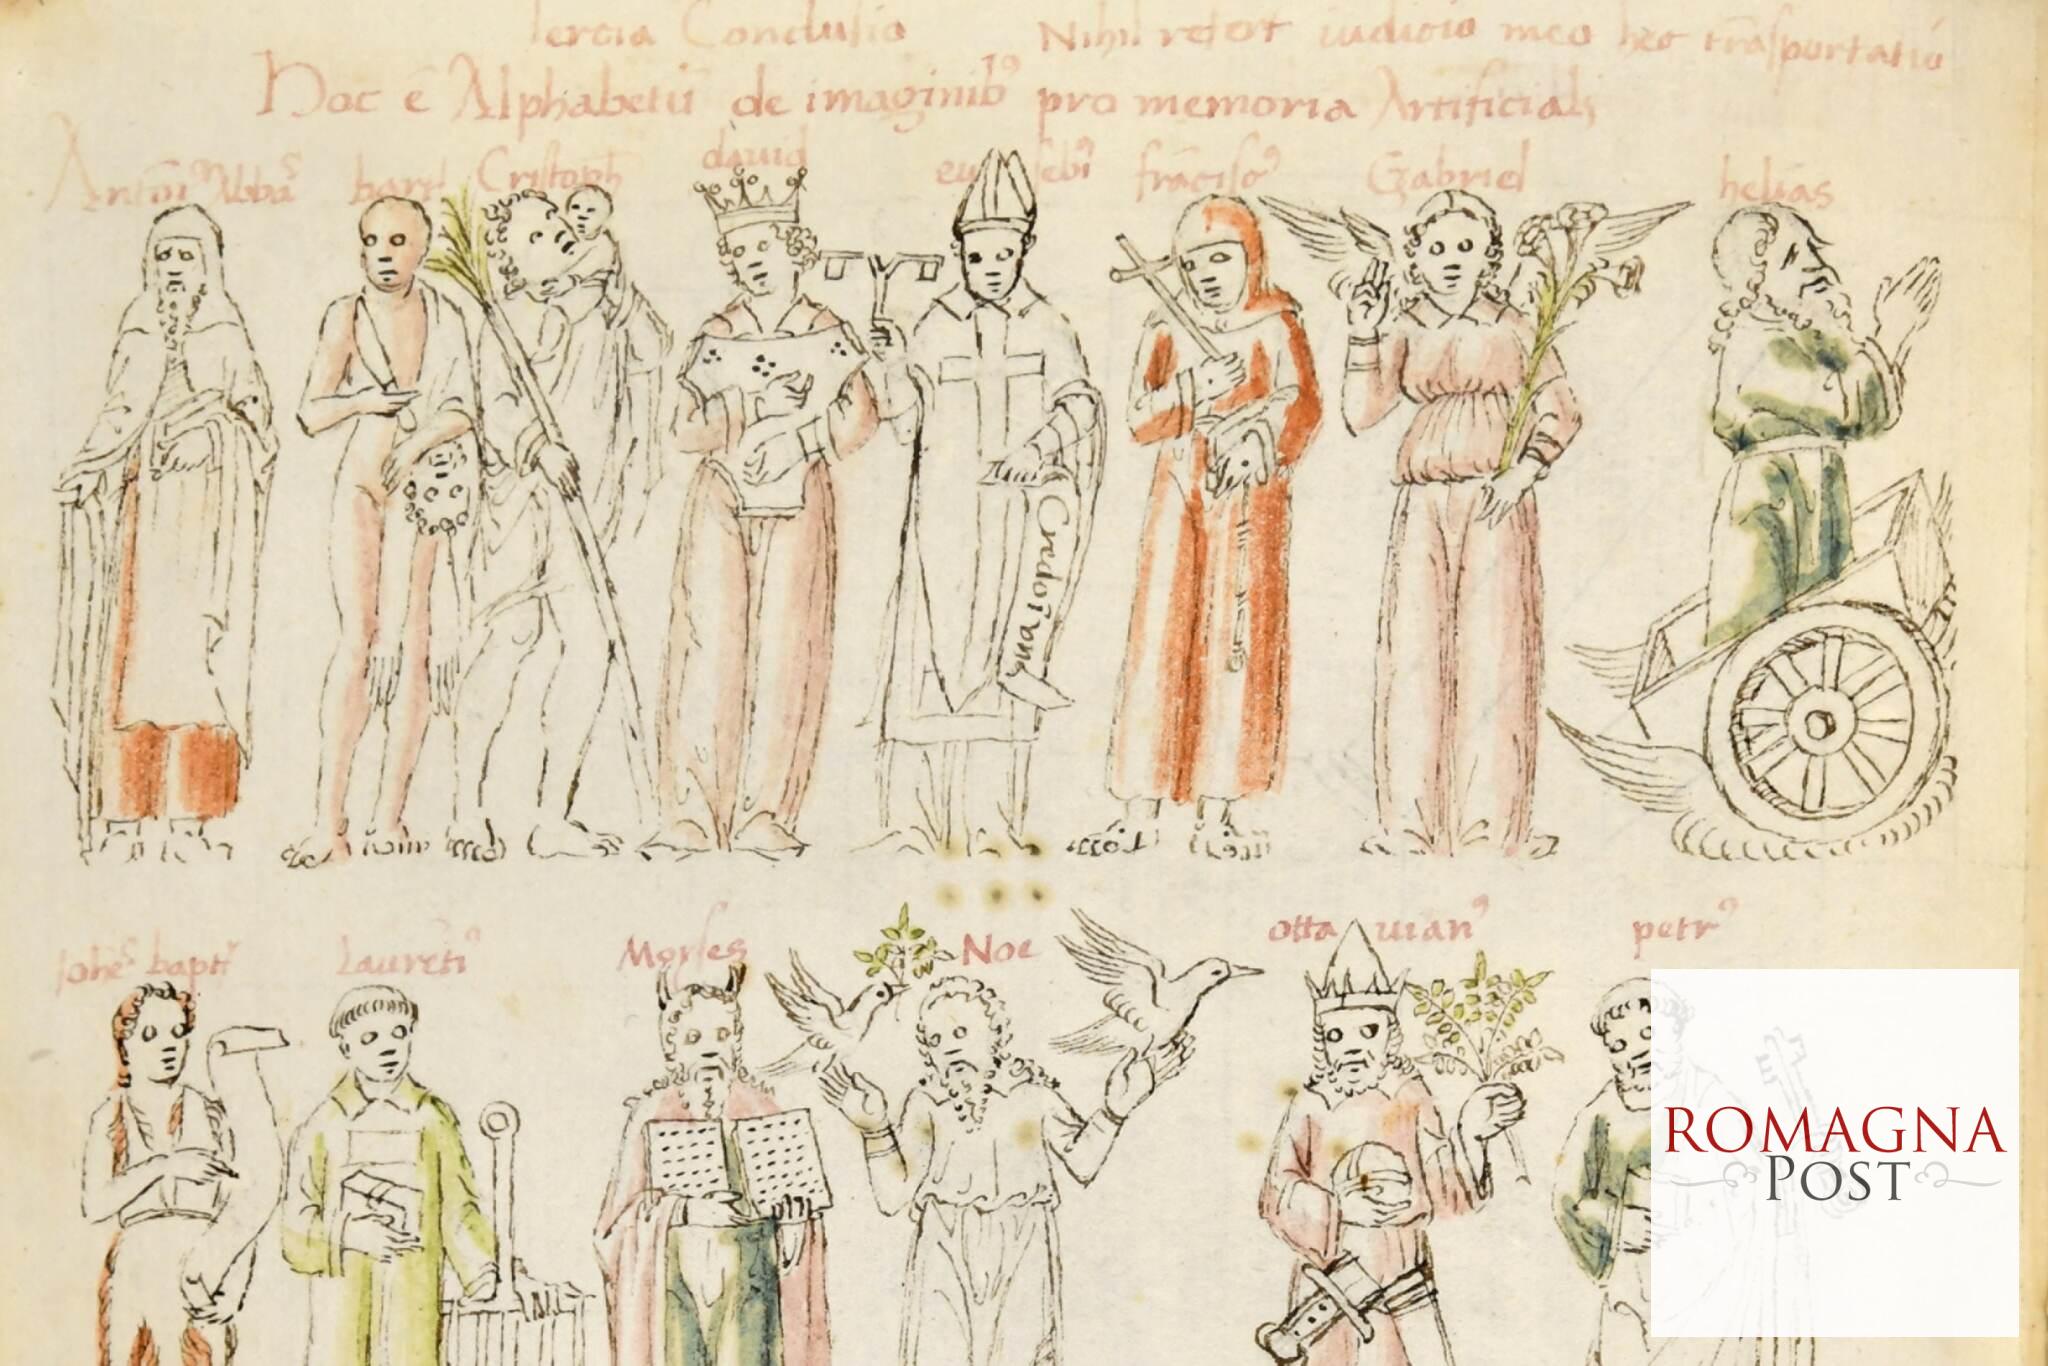 Tercia Conclusio Nihil refert iudicio meo hec trāsportatiō
Hoc ē Alphabetū de imaginibꝰ pro memoria Artificiali
Antoniꝰ Abba bart Cristoph dauid eusebiꝰ frāciscꝰ Gabriel helias
Credo ī
Johēs bapt Laurētiꝰ Moyses Noe ottauianꝰ petrꝰ
ROMAGNA
POST